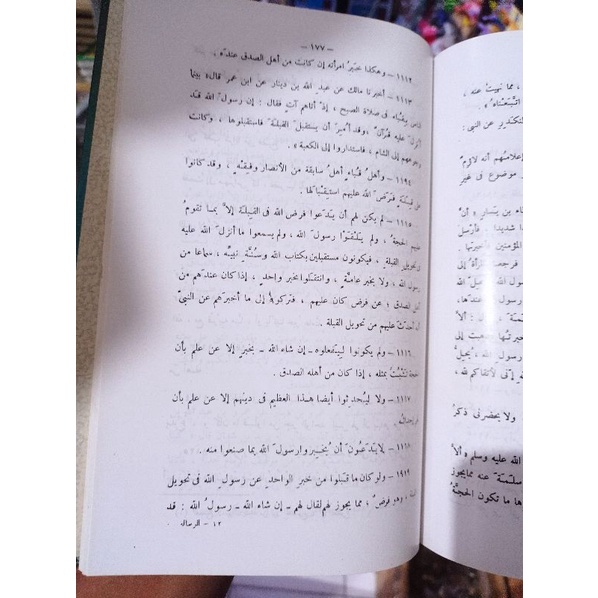 — ١٧٧ —
١١١٢ — وهكذا خبرُ امرأته إن كانت من أهل الصدق عنده .
١١١٣ — أخبرنا مالك عن عبد الله بن دينار عن ابن عمر قال « بينما
الناس بقُبَاء فى صلاة الصبح ، إذْ أتاهم آتٍ فقال : إن رسول الله قد
أُنزل عليه قرآنٌ ، وقد أُمِرَ أن يستقبلَ القبلةَ فاستقبلوها ، وكانت
وجوههم إلى الشام ، فاستداروا إلى الكعبة » .
١١١٤ — وأهلُ قُبَاءٍ أهلُ سابقة من الأنصار وفِقْهٍ ، وقد كانوا
على قبلة فرَضَ الله عليهم استقبالَها .
١١١٥ — ولم يكن لهم أن يَدَعوا فرض الله فى القبلة إلاَّ بما تقومُ
عليهم الحجةُ ، ولم يَلْقَوْا رسولَ الله ، ولم يسمعوا ما أنزلَ الله عليه
فى تحويل القبلة ، فيكونون مستقبلين بكتاب الله وسُنَّةِ نبيِّه ، سماعا من
رسول الله ، ولا بخبر عامَّةٍ ، وانتقلوا بخبر واحدٍ ، إذا كان عندهم من
أهل الصدق : عن فرض كان عليهم ، فتركوه إلى ما أخبرهم عن النبىِّ
أنه أحدثَ عليهم من تحويل القبلة .
١١١٦ — ولم يكونوا ليفعلوه — إن شاء الله — بخبرٍ إلا عن علم بأن
الحجة تثبُتُ بمثله ، إذا كان من أهله الصدق .
١١١٧ — ولا ليُحدِثوا أيضا هذا العظيم فى دينهم إلا عن علم بأن
لهم إحداثَه
١١١٨ — لا يدَعون أن يُخبِروا رسولَ الله بما صنعوا منه .
١٩١٩ — ولو كان ما قبلوا من خبر الواحد عن رسول الله فى تحويل
القبلة ، وهو فرضٌ ، مما يجوز لهم لقال لهم — إن شاء الله — رسولُ الله : قد
١٢ — الرسالة
، مما نهيتُ عنه ،
اتَّبَعْناهُ »
المنكدر عن النبى :
إعلامهم أنه لازم
موضوع فى غير
بن يَسَار « أن
شديدا . فأرسل
المؤمنين فأخبرتها ،
: ألاَ
رسولَ الله ، يُحِلُّ
إنى لأتقاكم لله ،
ولا يحضرنى ذكرُ
الله عليه وسلم « ألاَ
سلمة عنه مما يجوز
ما تكون الحجةُ